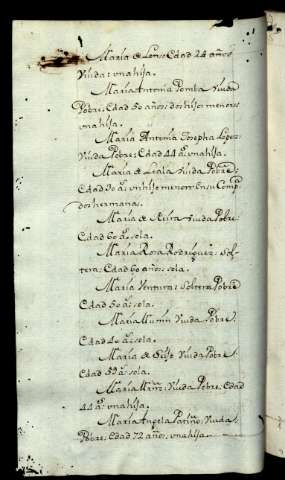 Maria de Lens Edad 24 años
Viuda: una hija.
Maria Antonia Pomba Viuda
Pobre: Edad 50 años: dos hijos menores
una hija.
Maria Antonia Josepha Lopez:
Viuda Pobre: Edad 44 a.s una hija.
Maria de Viuda Pobre:
Edad 30 a.s un hijo menor: En su Comp.a
dos hermanas.
Maria de Neira Viuda Pobre
Edad 60 a.s sola.
Maria Rosa Rodriguez: Sol-
tera: Edad 60 años: sola.
Maria Ventura: Soltera Pobre
Edad 50 a.s sola.
Maria Viuda Pobre
Edad 40 a.s sola.
Maria de Viuda Pobre:
Edad 59 a.s sola.
Maria Viuda Pobre: Edad
44 a.s una hija.
Maria Angela Patiño: Viuda
Pobre: Edad 72 años, una hija.